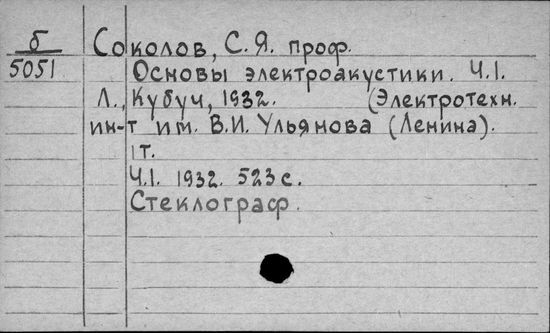 б
5051
Соколов, С.Я. проф.
Основы электроакустики. Ч.1.
Л., Кубуч, 1932. (Электротехн.
ин-т им. В.И. Ульянова (Ленина).
1т.
Ч.1. 1932. 523 с.
Стеклограф.